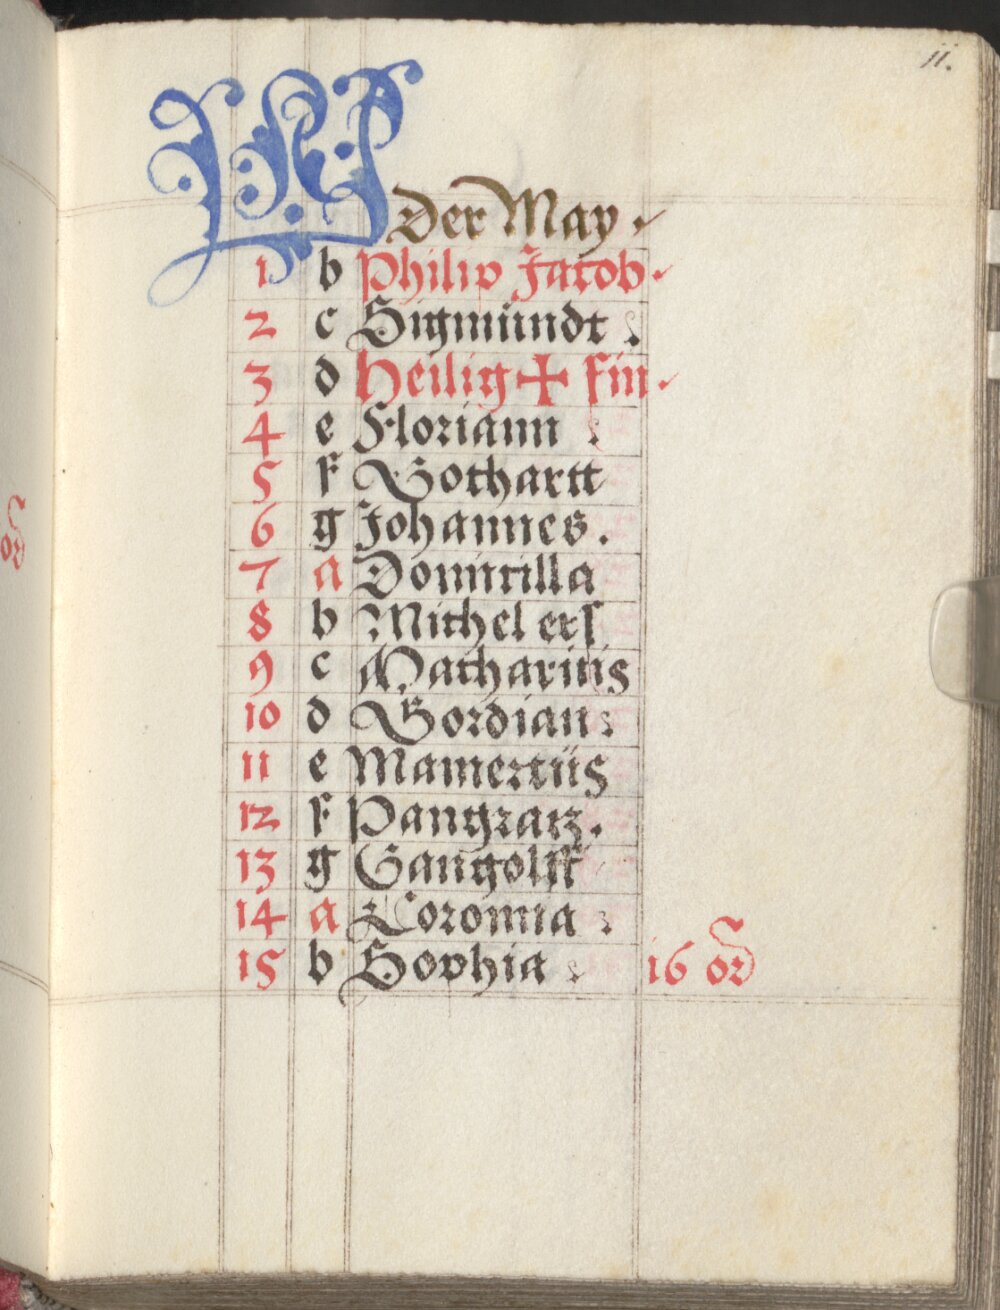 ii.
Der May
1 b Philip Jacob
2 c Sigmundt
3 d Heilig + fin
4 e Floriann
5 f Gothartt
6 g Johannes.
7 a Domicilla
8 b Michel ers
9 c Macharius
10 d Gordian
11 e Mamertus
12 f Pangratz.
13 g Gangolff
14 a Coromia
15 b Sophia 16 or
or